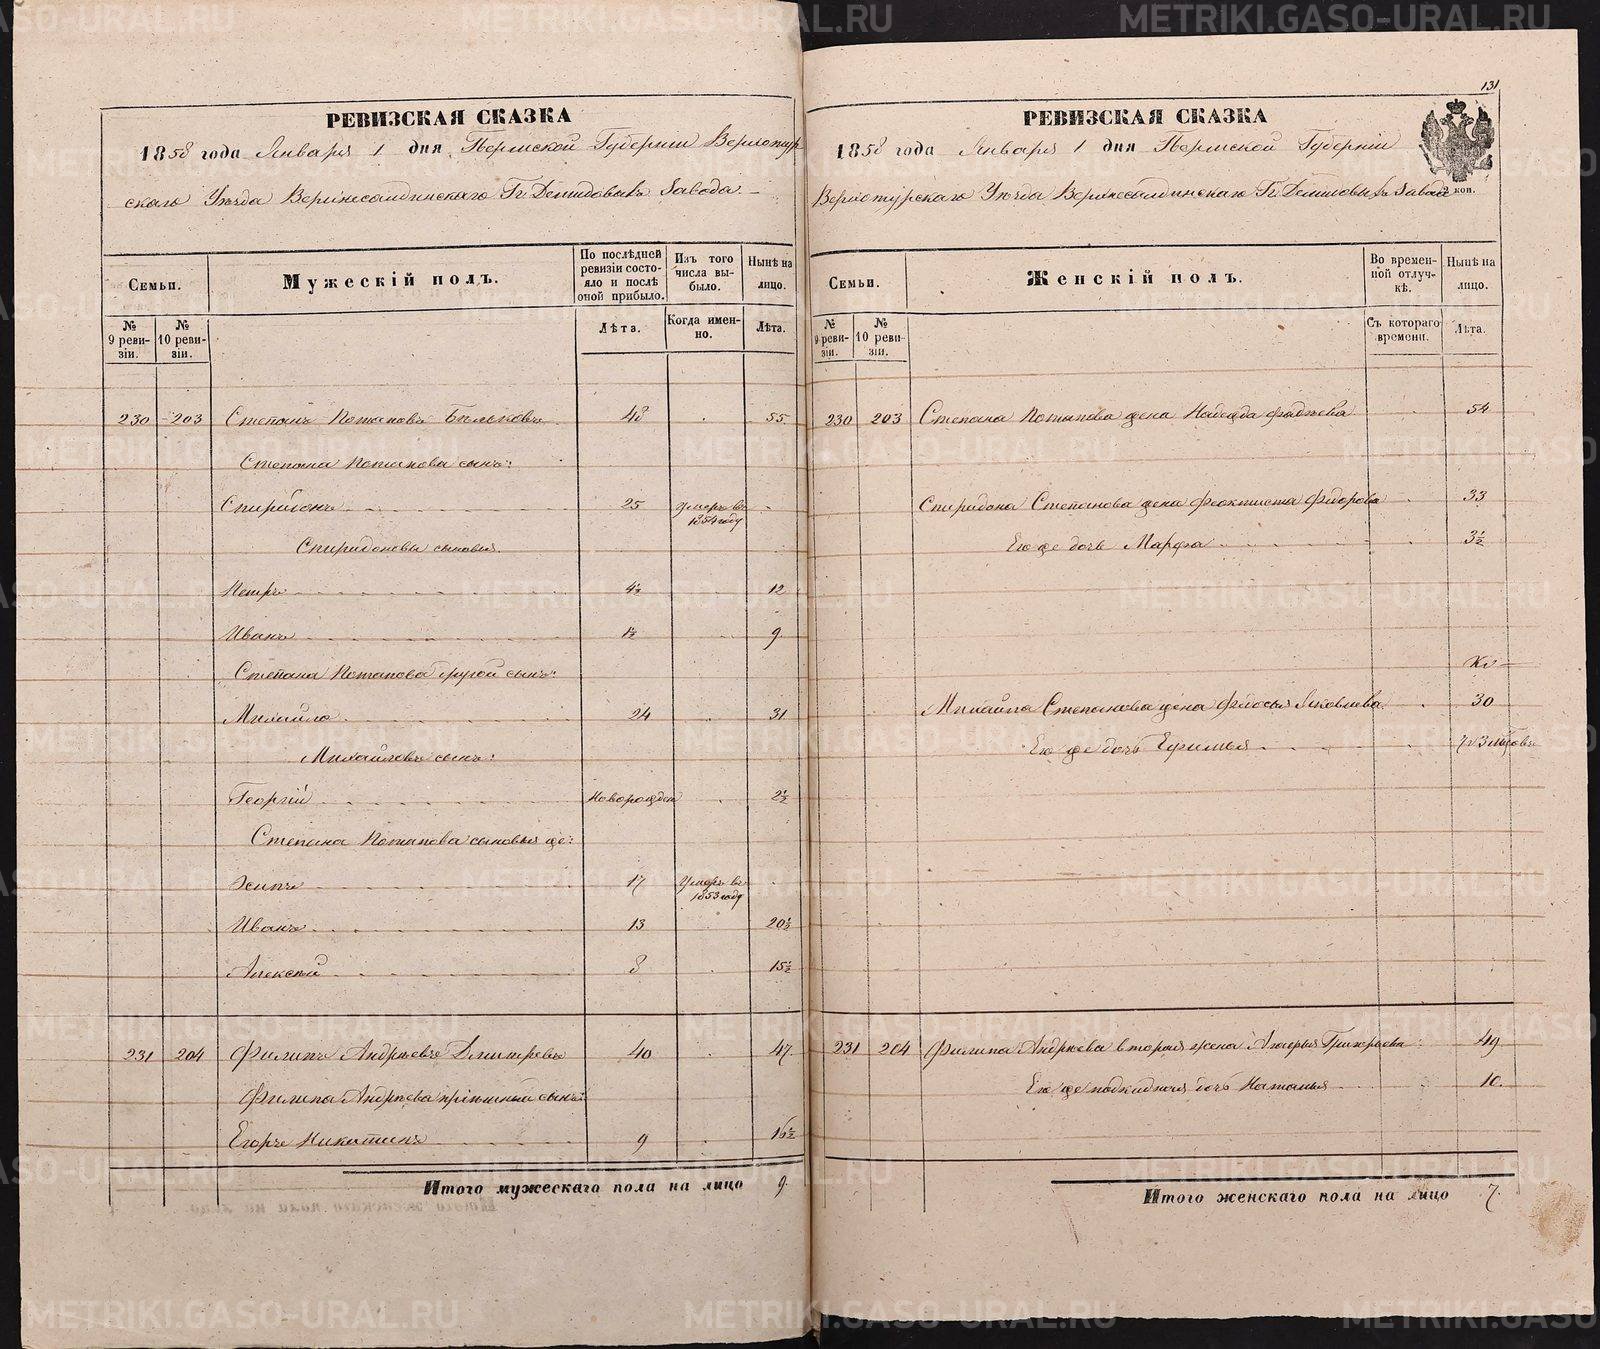 РЕВИЗСКАЯ СКАЗКА
1858 года Января 1 дня Пермской Губерніи Верхотур
скаго Уѣзда Верхнесалдинскаго Гг. Демидовыхъ Завода
Семьи.
Мужескій полъ.
По послѣдней ревизіи состояло и послѣ оной прибыло.
Изъ того числа выбыло.
Нынѣ на лицо.
№ 9 ревизіи.
№ 10 ревизіи.
Лѣта.
Когда именно.
Лѣта.
230 203 Степанъ Потаповъ 48 55.
Степана Потапова сынъ:
Спиридонъ 25 умеръ въ 1854 году
Спиридоновы сыновья.
Петръ 4½ 12
Иванъ 1½ 9
Степана Потапова другой сынъ:
Михайло 24 31
Михайловъ сынъ:
Георгій новорожден 2½
Степана Потапова сыновья же:
Осипъ 17 умеръ въ 1853 году
Иванъ 13 20½
Алексѣй 8 15½
231 204 Филипъ Андрѣевъ Дмитревъ 40 47.
Филипа Андрѣева пріемный сынъ:
Егоръ Никитинъ 9 16½
Итого мужескаго пола на лицо 9.
131
РЕВИЗСКАЯ СКАЗКА
1858 года Января 1 дня Пермской Губерніи
Верхотурскаго Уѣзда Верхнесалдинскаго Гг. Демидовыхъ Завода
коп.
Семьи.
Женскій полъ.
Во временной отлучкѣ.
Нынѣ на лицо.
№ 9 ревизіи.
№ 10 ревизіи.
Съ котораго времени.
Лѣта.
230 203 Степана Потапова жена Надежда Фадѣева 54
Спиридона Степанова жена Феоктиста Федорова 33
Его же дочь Марфа 3½
Михайла Степанова жена Федосья Яковлева 30
Его же дочь Ефимья
231 204 Филипа Андрѣева вторая жена Григорьева 49
Его же подкидная дочь Наталья 10.
Итого женскаго пола на лицо 7.
METRIKI.GASO-URAL.RU